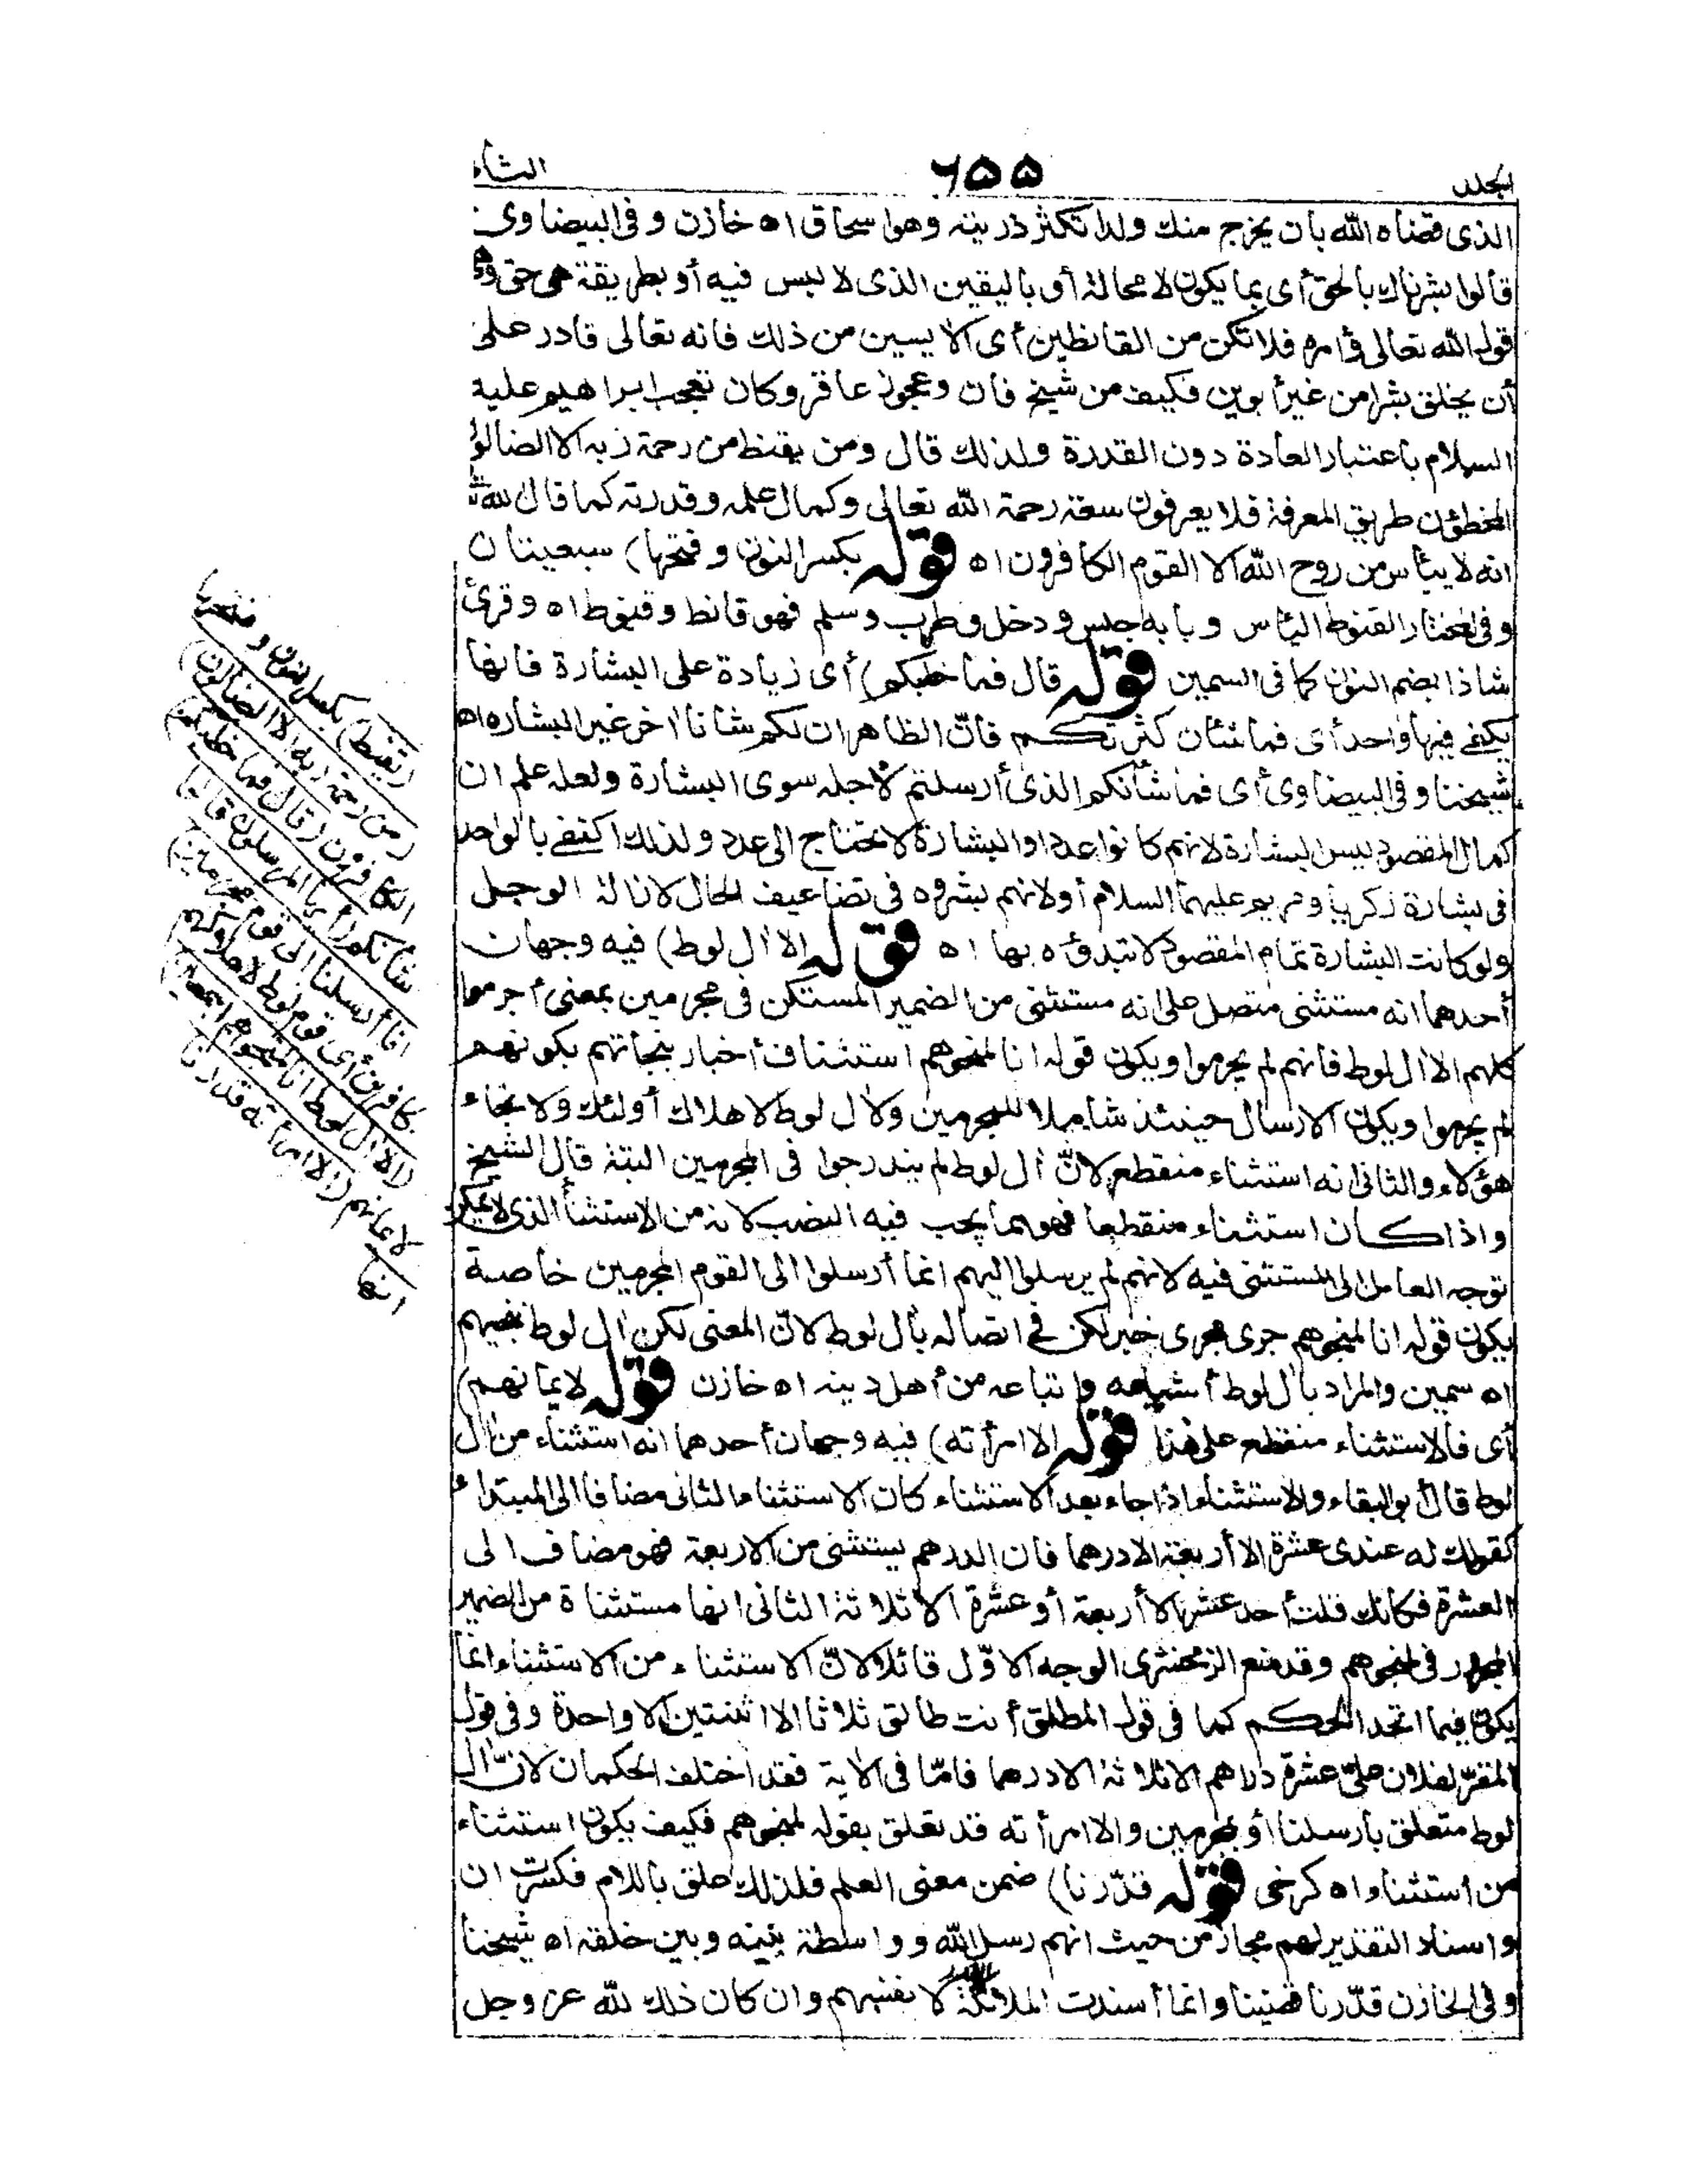 المجلد ٦٥٥ الثا
الذى قضاه الله بان يخرج منك ولدا تكثر ذريته وهو اسحاق اه خازن وفى البيضاوى
قالوا بشرناك بالحق أى بما يكون لا محالة أو باليقين الذى لا لبس فيه أو بطريقة هى حق وهو
قول الله تعالى وأمره فلا تكن من القانطين أى الآيسين من ذلك فانه تعالى قادر على
أن يخلق بشرا من غير أبوين فكيف من شيخ فان وعجوز عاقر وكان تعجب ابراهيم عليه
السلام باعتبار العادة دون القدرة ولذلك قال ومن يقنط من رحمة ربه الا الضالون
المخطؤن طريق المعرفة فلا يعرفون سعة رحمة الله تعالى وكمال علمه وقدرته كما قال الله
انه لا ييأس من روح الله الا القوم الكافرون اه قوله بكسر النون وفتحها) سبعيتان
وفى المختار القنوط اليأس وبابه جلس ودخل وطرب وسلم فهو قانط وقنوط اه وقرئ
شاذا بضم النون كما فى السمين قوله قال فما خطبكم) أى زيادة على البشارة فانها
يكفى فيها واحد أى فما شان كثرتكم فانّ الظاهر ان لكم شانا اخر غير البشاره اه
شيخنا وفى البيضاوى أى فما شأنكم الذى أرسلتم لاجله سوى البشارة ولعله علم ان
كمال المقصود ليس البشارة لانهم كانوا عددا والبشارة لا تحتاج الى عدد ولذلك اكتفى بالواحد
فى بشارة زكريا ومريم عليهما السلام أو لانهم بشروه فى تضاعيف الحال لازالة الوجل
ولو كانت البشارة تمام المقصود لابتدؤه بها اه قوله الا ال لوط) فيه وجهان
أحدهما انه مستثنى متصل على انه مستثنى من الضمير المستكن فى مجرمين بمعنى أجرموا
كلهم الا ال لوط فانهم لم يجرموا ويكون قوله انا لمنجوهم استئناف أخبار بنجاتهم بكونهم
لم يجرموا ويكون الارسال حينئذ شاملا للمجرمين ولال لوط لاهلاك أولئك ولانجاء
هؤلاء والثانى انه استثناء منقطع لانّ ال لوط لم يندرجوا فى المجرمين البتة قال الشيخ
واذا كان استثناء منقطعا فهو مما يجب فيه النصب لانه من الاستثنأ الذى لا يمكن
توجه العامل الى المستثنى فيه لانهم لم يرسلوا اليهم انما أرسلوا الى القوم المجرمين خاصة
يكون قوله انا لمنجوهم جرى مجرى خبر لكن فى اتصاله بال لوط لانّ المعنى لكن ال لوط ننجيهم
اه سمين والمراد بال لوط أشياعه واتباعه من أهل دينه اه خازن قوله لايمانهم)
أى فالاستثناء منقطع على هذا قوله الا امرأته) فيه وجهان أحدهما انه استثناء من ال
لوط قال أبو البقاء والاستثناء اذا جاء بعد الاستثناء كان الاستثناء الثانى مضافا الى المبتداء
كقولك له عندى عشرة الا أربعة الا درهما فان الدرهم يستثنى من الاربعة فهو مضاف الى
العشرة فكانك قلت أحد عشر الا أربعة أو عشرة الا ثلاثة الثانى انها مستثناة من الضمير
المجرور فى لمنجوهم وقد منع الزمخشرى الوجه الاوّل قائلا لانّ الاستثناء من الاستثناء انما
يكون فيما اتحد الحكم كما فى قول المطلق أنت طالق ثلاثا الا اثنتين الا واحدة وفى قول
المقرّ لفلان علىّ عشرة دراهم الا ثلاثة الا درهما فامّا فى الاية فقد اختلف الحكمان لانّ ال
لوط متعلق بأرسلنا أو بمجرمين والا امرأته قد تعلق بقوله لمنجوهم فكيف يكون استثناء
من استثناء اه كرخى قوله قدّرنا) ضمن معنى العلم فلذلك علق باللام فكسرت ان
واسناد التقدير لهم مجاز من حيث انهم رسل الله وواسطة بينه وبين خلقه اه شيخنا
وفى الخازن قدّرنا قضينا وانما أسندت الملائكة لانفسهم وان كان ذلك لله عز وجل
(يقنط) بكسر النون وفتحها
(من رحمة ربه الا الضالون)
الكافرون (قال فما خطبكم)
شأنكم (أيها المرسلون قالوا
انا أرسلنا الى قوم مجرمين)
كافرين أى قوم لوط لاهلاكهم
(الا ال لوط انا لمنجوهم أجمعين)
لايمانهم (الا امرأته قدرنا
انها